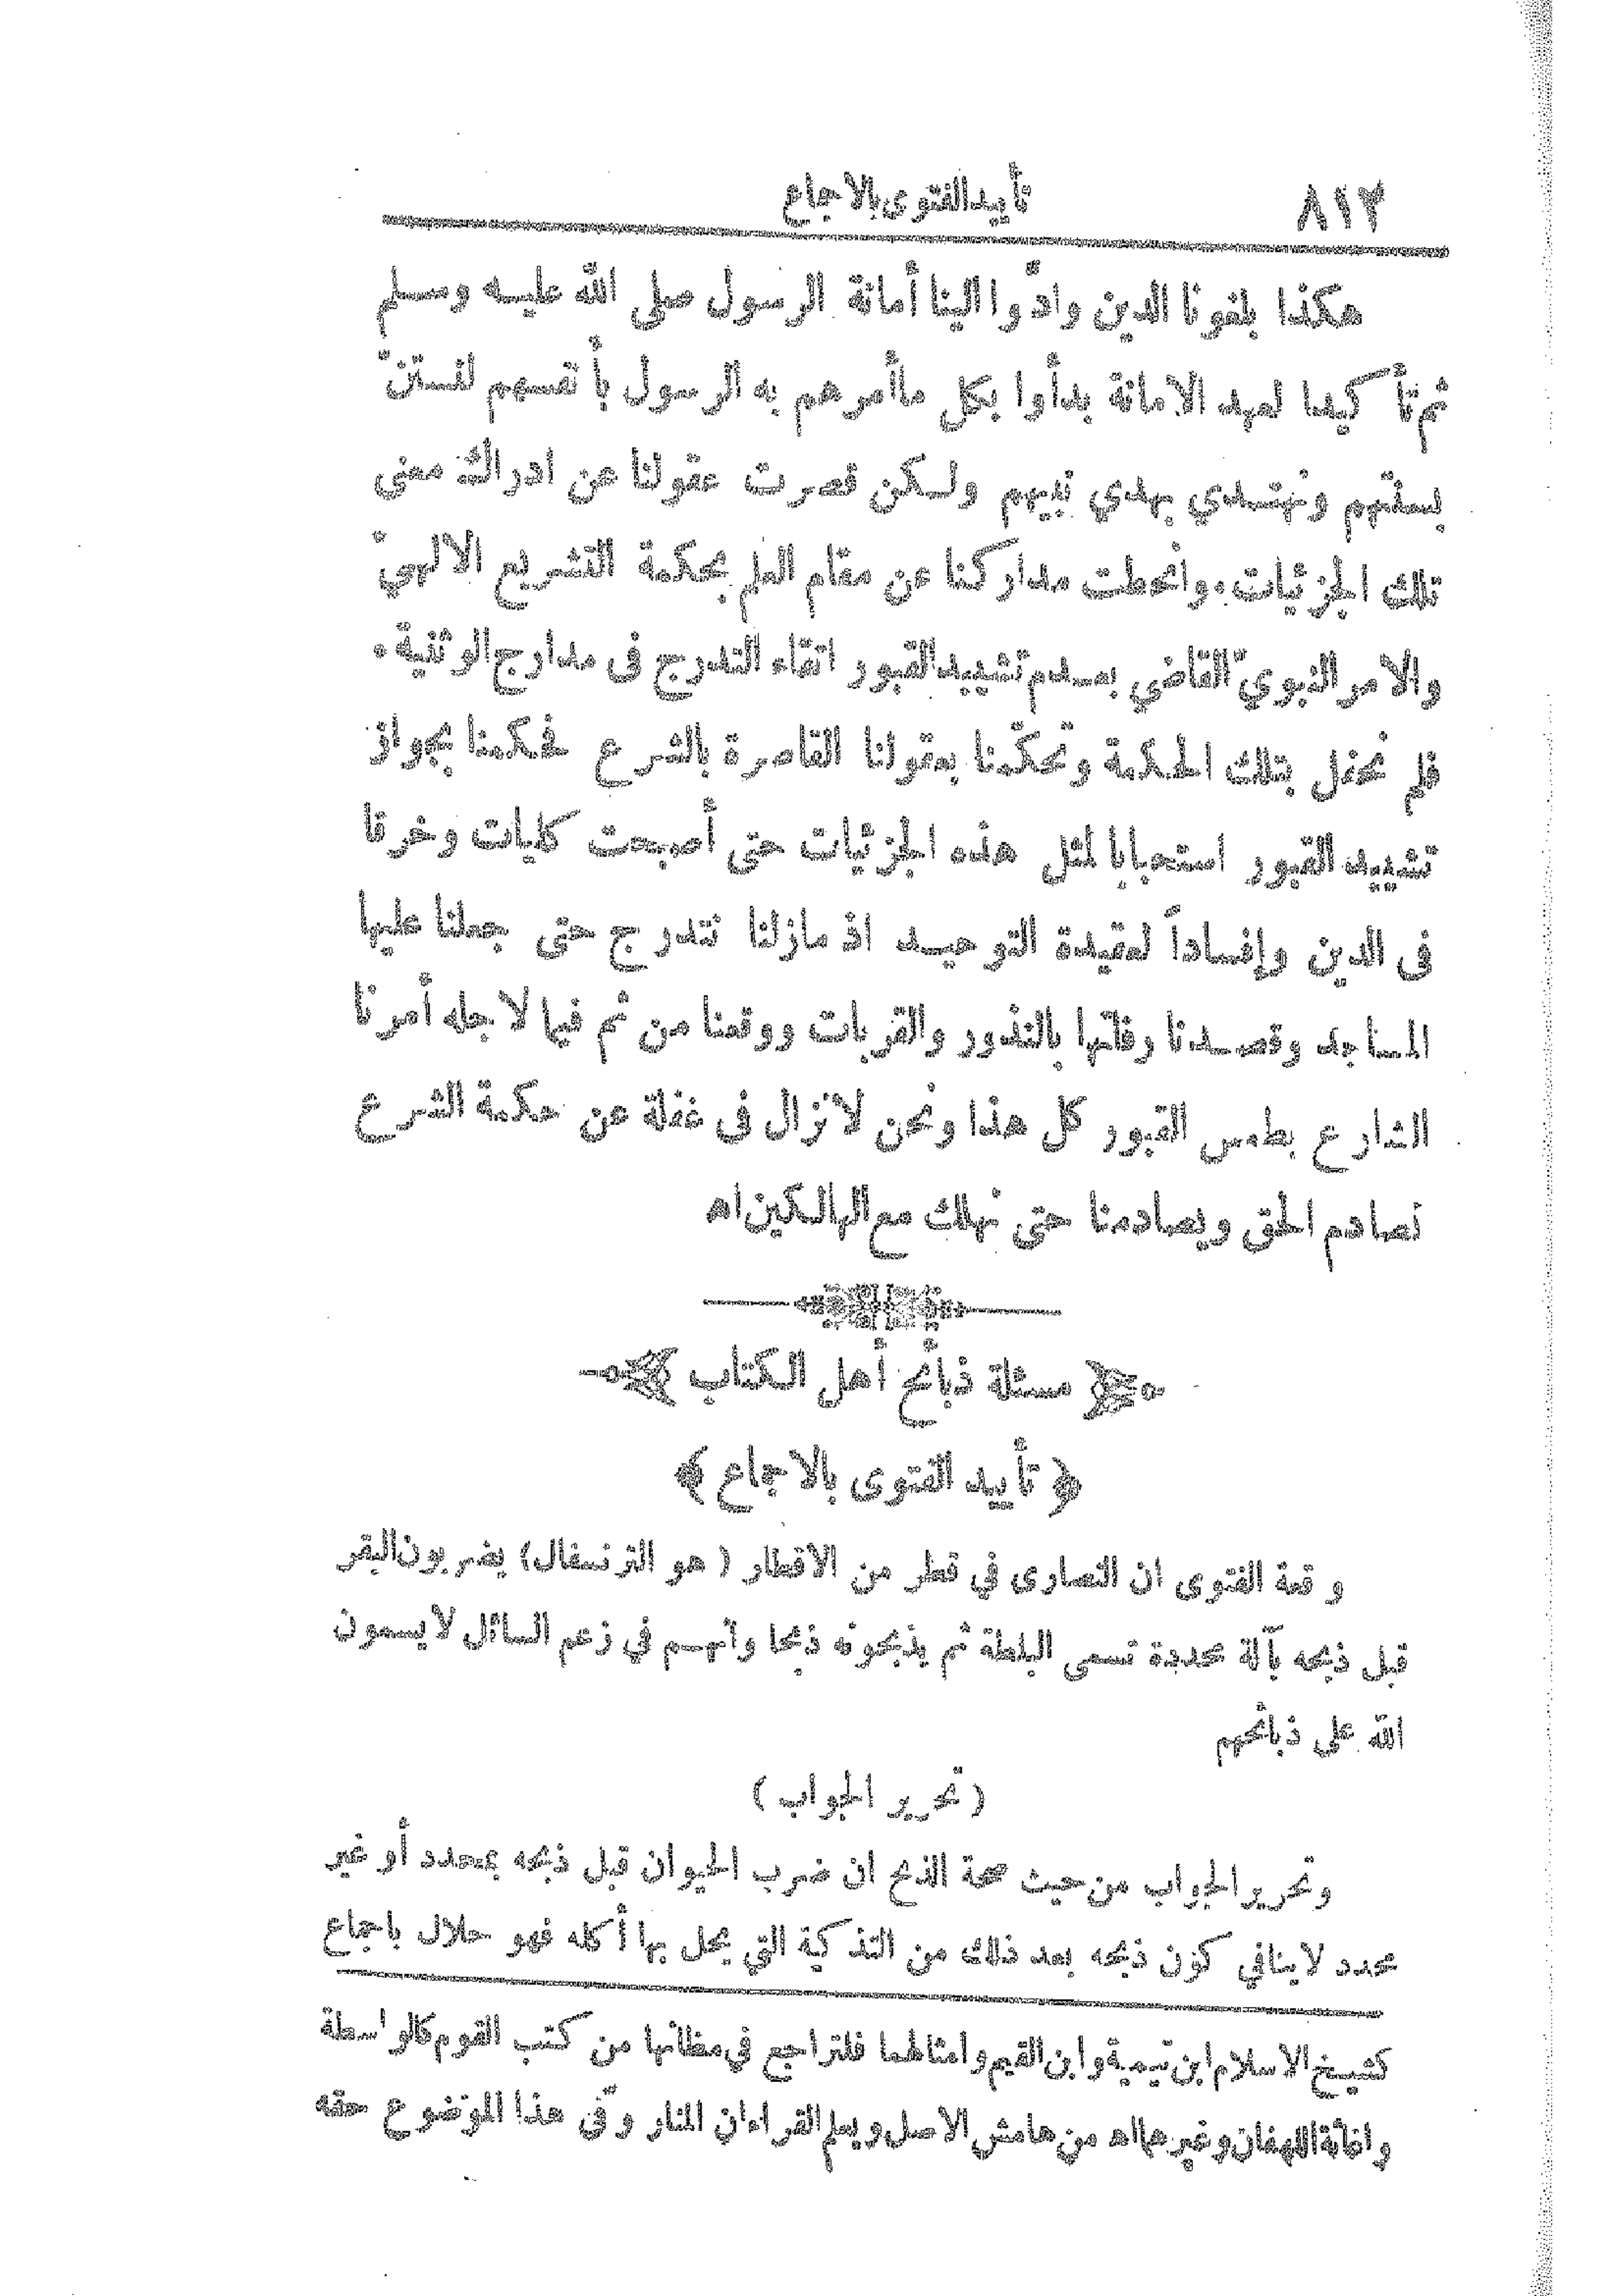 ٨١٢
تأييد الفتوى بالاجماع
هكذا بلغونا الدين وادّوا الينا أمانة الرسول صلى الله عليه وسلم
ثم تأكيدا لعهد الامانة بدأوا بكل ما أمرهم به الرسول بأنفسهم لنستنّ
بسنتهم ونهتدي بهدي نبيهم ولكن قصرت عقولنا عن ادراك معنى
تلك الجزئيات. وانحطت مداركنا عن مقام العلم بحكمة التشريع الالهيّ
والامر النبويّ القاضي بعدم تشييد القبور اتقاء التدرج فى مدارج الوثنية.
فلم نحفل بتلك الحكمة وتحكّمنا بعقولنا القاصرة بالشرع فحكمنا بجواز
تشييد القبور استحبابا لمثل هذه الجزئيات حتى أصبحت كليات وخرقا
فى الدين وإفساداً لعقيدة التوحيد اذ مازلنا نتدرج حتى جعلنا عليها
المساجد وقصدنا رفاتها بالنذور والقربات ووقعنا من ثم فيما لاجله أمرنا
الشارع بطمس القبور كل هذا ونحن لانزال فى غفلة عن حكمة الشرع
نصادم الحق ويصادمنا حتى نهلك مع الهالكين اه
مسئلة ذبائح أهل الكتاب
﴿ تأييد الفتوى بالاجماع ﴾
وقعة الفتوى ان النصارى في قطر من الاقطار ( هو الترنسفال) يضربون البقر
قبل ذبحه بآلة محددة تسمى البلطة ثم يذبحونه ذبحا وانهم في زعم السائل لايسمون
الله على ذبائحهم
( تحرير الجواب )
وتحرير الجواب من حيث صحة الذبح ان ضرب الحيوان قبل ذبحه بمحدد أو غير
محدد لاينافي كون ذبحه بعد ذلك من التذكية التي يحل بها أكله فهو حلال باجماع
كشيخ الاسلام ابن تيمية وابن القيم وامثالهما فلتراجع في مظانها من كتب القوم كالواسطة
واغاثة اللهفان وغيرهما اه من هامش الاصل ويعلم القراء ان المنار وفّى هذا الموضوع حقه